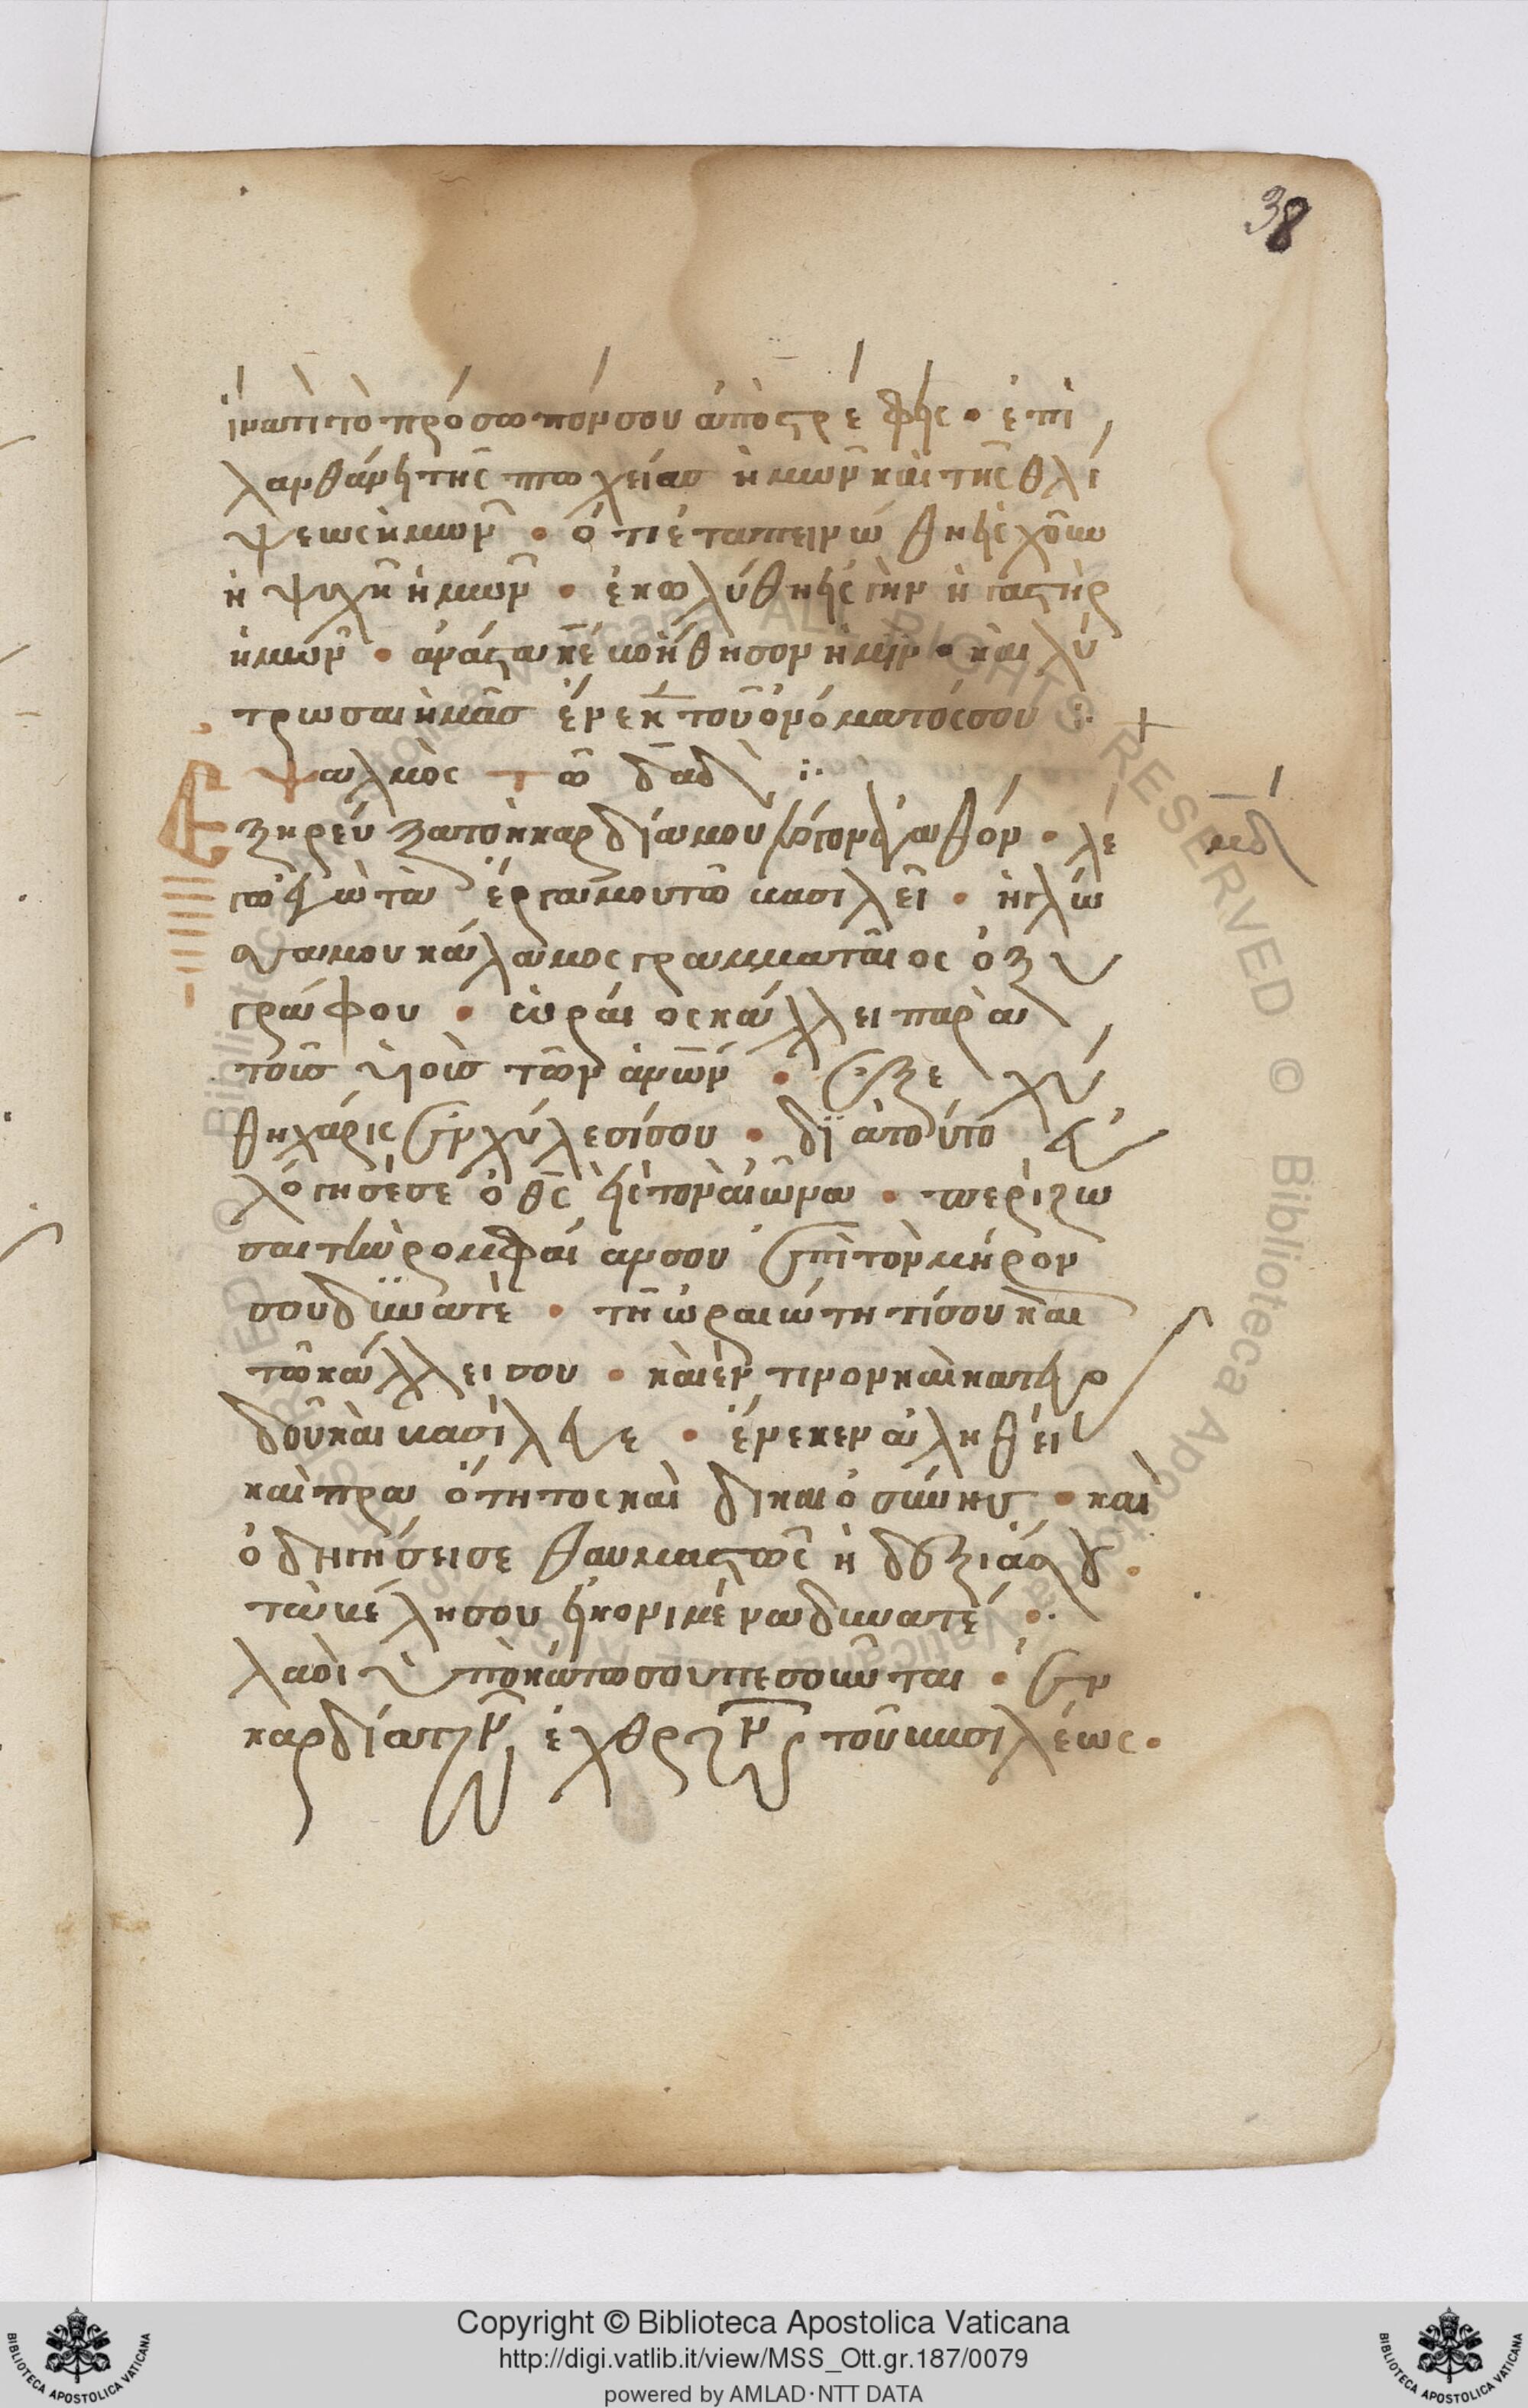 38
ἱνατὶ τὸ πρόσωπόν σου ἀποστρέφεις · ἐπι
λανθάνει τῆς πτωχείας ἡμῶν καὶ τῆς θλί
ψεως ἡμῶν · ὅτι ἐταπεινώθη εἰς χοῦν
ἡ ψυχὴ ἡμῶν · ἐκολλύθη εἰς γὴν ἡ γαστὴρ
ἡμῶν · ἀνάστα κε βοήθησον ἡμῖν · καὶ λύ
τρωσαι ἡμᾶς ἕνεκ τοῦ ὀνόματός σου :· +
ψαλμὸς τῶ δαδ :·
Ἐξηρεύξατο ἡ καρδία μου λόγον ἀγαθόν · λέ
μδ
γω ἐγὼ τὰ ἔργα μου τῶ βασιλεῖ · ἡ γλῶ
σσα μου κάλαμος γραμματαίος ὀξυ
γράφου · ὡραίος κάλλει παρὰ
τοὺς υἱοὺς τῶν ἀνων · ἐξεχύ
θη χάρις ἐν χύλεσί σου · διὰ τοῦτο εὐ
λόγησέ σε ὁ θς εἰς τὸν αἰῶνα · περίζω
σαι τὴν ρομφαίαν σου ἐπὶ τὸν μηρόν
σου δυνατὲ · τῆ ὡραιώτητί σου καὶ
τῶ κάλλει σου · καὶ ἔντινον καὶ κατευο
δοῦ καὶ βασίλευε · ἕνεκεν ἀληθεί
καὶ πραότητος καὶ δικαιοσύνης · καὶ
ὁδηγήσει σε θαυμαστῶς ἡ δεξιά σου ·
τὰ βέλη σου ἠκονιμένα δυνατέ :·
λαοὶ ὑποκάτω σου πεσοῦνται · ἐν
καρδία τῶν ἐχθρῶν τοῦ βασιλέως ·
Copyright © Biblioteca Apostolica Vaticana
http://digi.vatlib.it/view/MSS_Ott.gr.187/0079
powered by AMLAD·NTT DATA